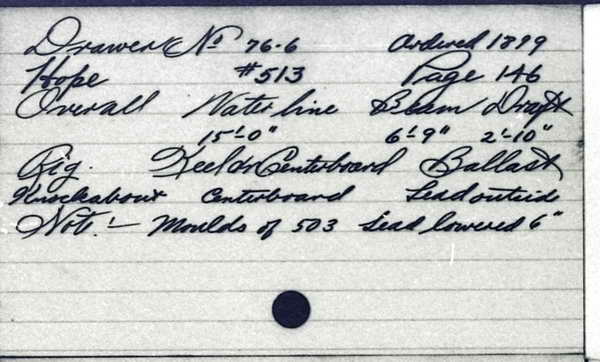 Drawer No 76-6 Ordered 1899
Hope #513 Page 146
Overall Water line Beam Draft
15'-0" 6'-9" 2'-10"
Rig. Keel or Centerboard Ballast
Knockabout Centerboard Lead outside
Note:- Moulds of 503 Lead lowered 6"